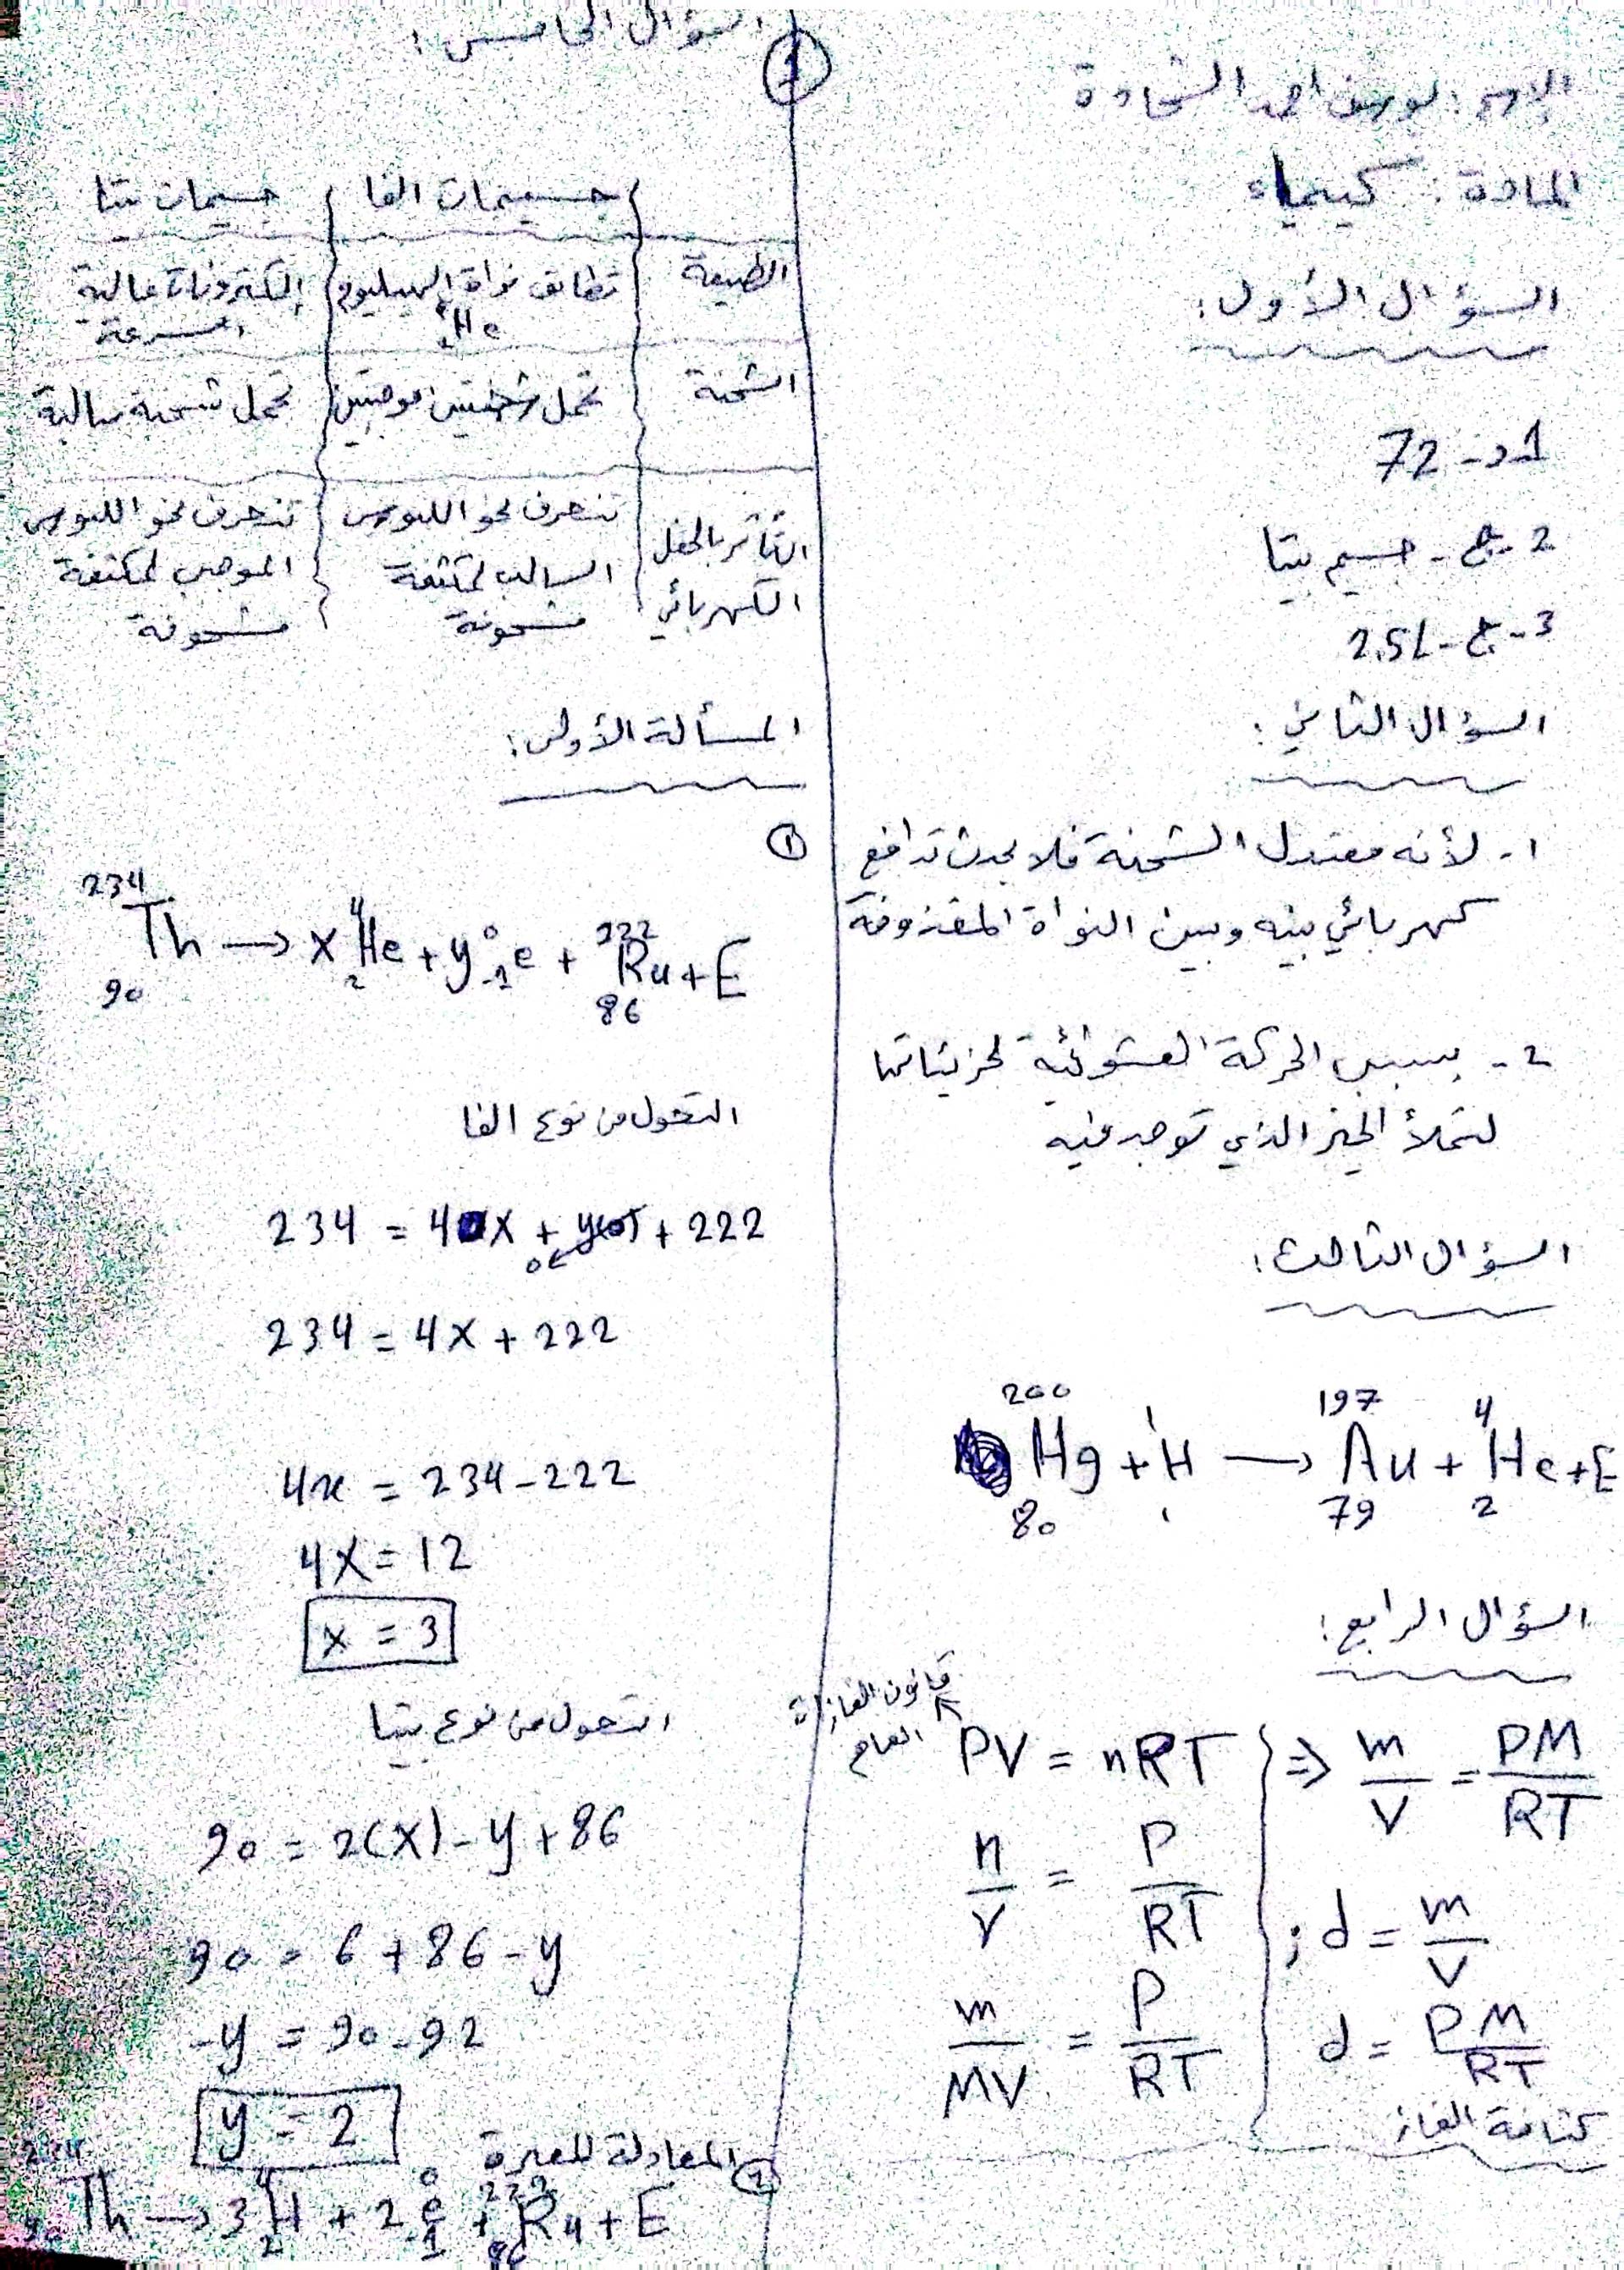 الاسم: يوسف احمد الشحادة
المادة: كيمياء
السؤال الأول:
1-د- 72
2-ج- جسيم بيتا
3-ج- 2.5L
السؤال الثاني:
1- لأنه معتدل الشحنة فلا يحدث تدافع
كهربائي بينه وبين النواة المقذوفة
2- بسبب الحركة العشوائية لجزيئاتها
لتملأ الحيز الذي توجد فيه
السؤال الثالث:
²⁰⁰₈₀Hg + ¹₁H → ¹⁹⁷₇₉Au + ⁴₂He + E
السؤال الرابع:
قانون الغازات
العام
PV = nRT
n/V = P/RT
m/MV = P/RT
⇒ m/V = PM/RT
; d = m/V
d = PM/RT
كثافة الغاز
السؤال الخامس:
جسيمات الفا جسيمات بيتا
الطبيعة تطابق نواة الهيليوم ⁴₂He إلكترونات عالية السرعة
الشحنة تحمل شحنتين موجبتين تحمل شحنة سالبة
التأثر بالحقل الكهربائي تنحرف نحو اللبوس السالب لمكثفة مشحونة تنحرف نحو اللبوس الموجب لمكثفة مشحونة
المسألة الأولى:
①
²³⁴₉₀Th → x ⁴₂He + y ⁰₋₁e + ²²²₈₆Ru + E
التحول من نوع الفا
234 = 4x + y(0) + 222
0
234 = 4x + 222
4x = 234 - 222
4x = 12
x = 3
التحول من نوع بيتا
90 = 2(x) - y + 86
90 = 6 + 86 - y
-y = 90 - 92
y = 2
② المعادلة المعبرة
²³⁴₉₀Th → 3 ⁴₂H + 2 ⁰₋₁e + ²²²₈₆Ru + E